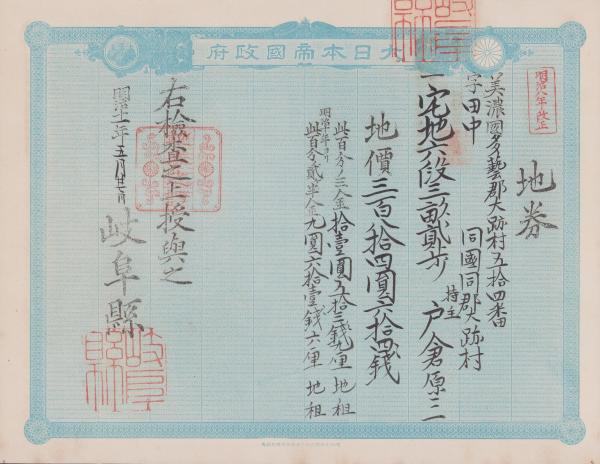 大日本帝國政府
明治八年改正
地券
美濃國多藝郡大跡村五拾四番
字田中
同國同郡大跡村
一宅地六段三畝貳歩
持主
戸倉原三
地價三百八拾四圓六拾四錢
此百分ノ三金拾壹圓五拾三錢九厘
地租
明治十年ヨリ
此百分貳半金九圓六拾壹錢六厘
地租
右檢査之上授與之
明治十一年五月廿七日
岐阜縣
岐阜縣